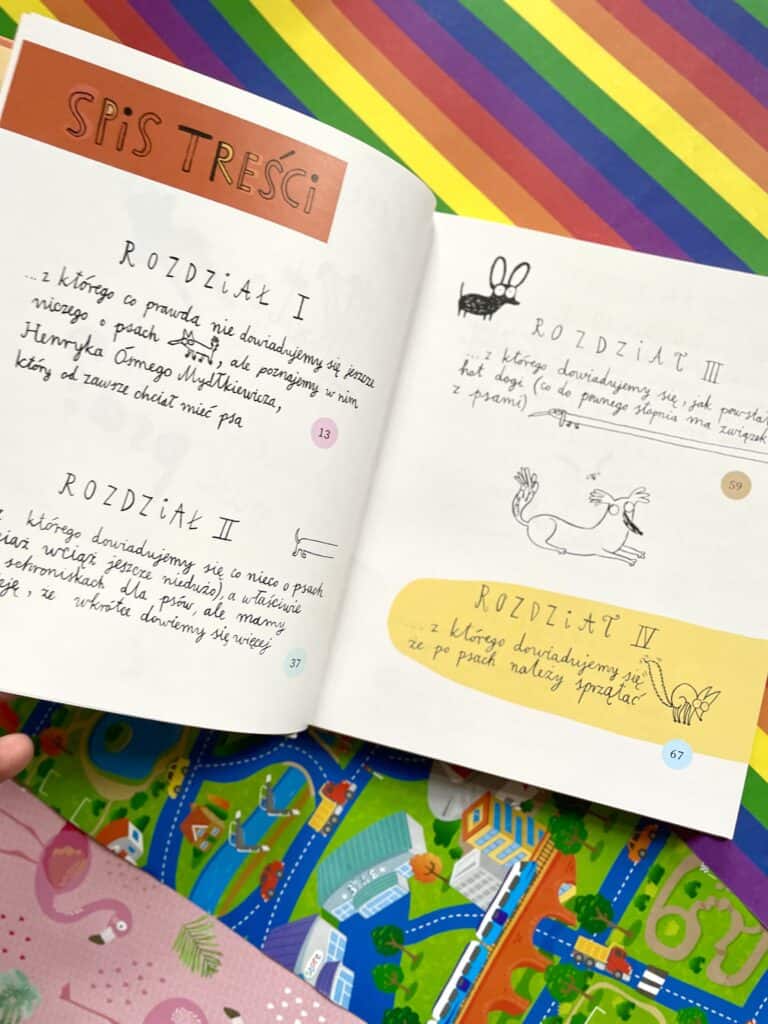 SPiS TREŚCi
ROZDZiAŁ I
...z którego co prawda nie dowiadujemy się jeszcze
niczego o psach, ale poznajemy w nim
Henryka Ósmego Mydłkiewicza,
który od zawsze chciał mieć psa
13
ROZDZiAŁ II
z którego dowiadujemy się co nieco o psach
wciąż jeszcze niedużo), a właściwie
schroniskach dla psów, ale mamy
, że wkrótce dowiemy się więcej
37
ROZDZiAŁ III
...z którego dowiadujemy się, jak powstał
hot dogi (co do pewnego stopnia ma związek
z psami)
59
ROZDZiAŁ IV
...z którego dowiadujemy się
że po psach należy sprzątać
67